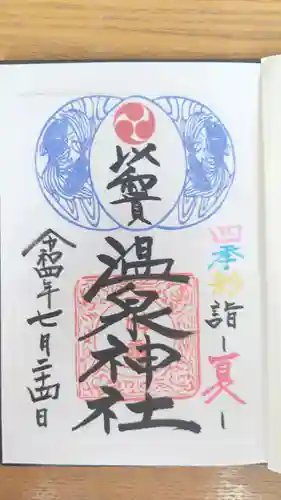 四季彩詣 ー夏ー
温泉神社
令和四年七月二十四日